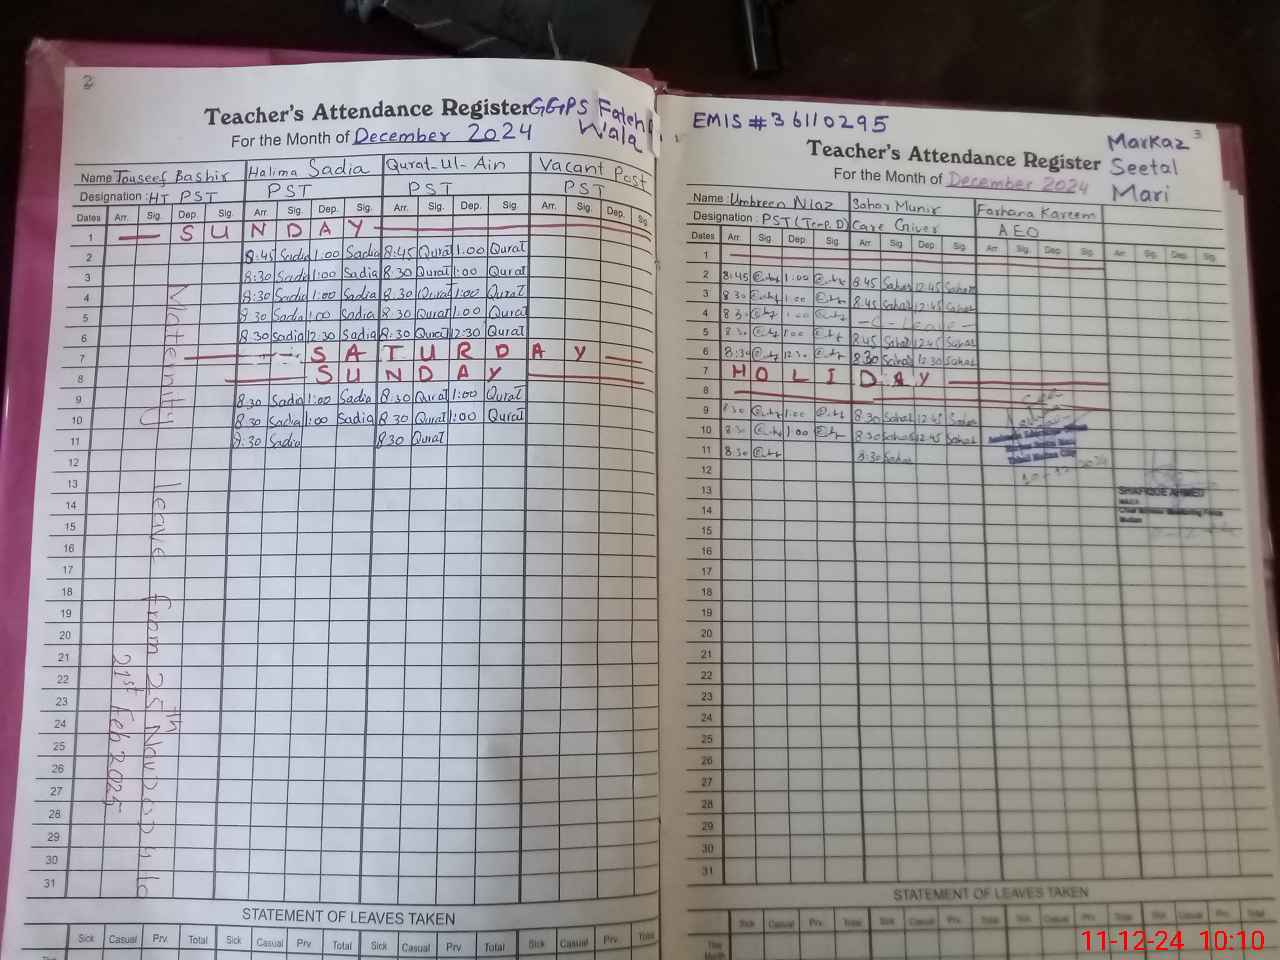 2
Teacher's Attendance Register GGPS Fateh
Wala
For the Month of December 2024
Name Touseef Bashir Halima Sadia Qurat-Ul-Ain Vacant Post
Designation : HT PST PST PST PST
Dates Arr. Sig. Dep. Sig. Arr. Sig. Dep. Sig. Arr. Sig. Dep. Sig. Arr. Sig. Dep. Sig.
1 SUNDAY
2 8:45 Sadia 1:00 Sadia 8:45 Qurat 1:00 Qurat
3 8:30 Sadia 1:00 Sadia 8:30 Qurat 1:00 Qurat
4 8:30 Sadia 1:00 Sadia 8:30 Qurat 1:00 Qurat
5 8:30 Sadia 1:00 Sadia 8:30 Qurat 1:00 Qurat
6 8:30 Sadia 12:30 Sadia 8:30 Qurat 12:30 Qurat
7 SATURDAY
8 SUNDAY
9 8:30 Sadia 1:00 Sadia 8:30 Qurat 1:00 Qurat
10 8:30 Sadia 1:00 Sadia 8:30 Qurat 1:00 Qurat
11 8:30 Sadia 8:30 Qurat
12
13
14
15
16
17
18
19
20
21
22
23
24
25
26
27
28
29
30
31
Maternity leave from 25th Nov 2024 to
21st Feb 2025
STATEMENT OF LEAVES TAKEN
Sick Casual Prv. Total Sick Casual Prv. Total Sick Casual Prv. Total Sick Casual Prv. Total
EMIS # 36110295
3
Markaz
Seetal
Mari
Teacher's Attendance Register
For the Month of December 2024
Name : Umbreen Niaz Sahar Munir Farhana Kareem
Designation : PST (Temp. D) Care Giver AEO
Dates Arr. Sig. Dep. Sig. Arr. Sig. Dep. Sig. Arr. Sig. Dep. Sig. Arr. Sig. Dep. Sig.
1
2 8:45 1:00 8:45 Sahar 12:45 Sahar
3 8:30 1:00 8:45 Sahar 12:45 Sahar
4 8:30 1:00 - C - Leave -
5 8:30 1:00 8:45 Sahar 12:45 Sahar
6 8:30 12:30 8:30 Sahar 12:30 Sahar
7 HOLIDAY
8
9 8:30 1:00 8:30 Sahar 12:45 Sahar
10 8:30 1:00 8:30 Sahar 12:45 Sahar
11 8:30 8:30 Sahar
12
13
14
15
16
17
18
19
20
21
22
23
24
25
26
27
28
29
30
31
SHAFIQUE AHMED
STATEMENT OF LEAVES TAKEN
Sick Casual Prv. Total Sick Casual Prv. Total Sick Casual Prv. Total Sick Casual Prv. Total
11-12-24 10:10